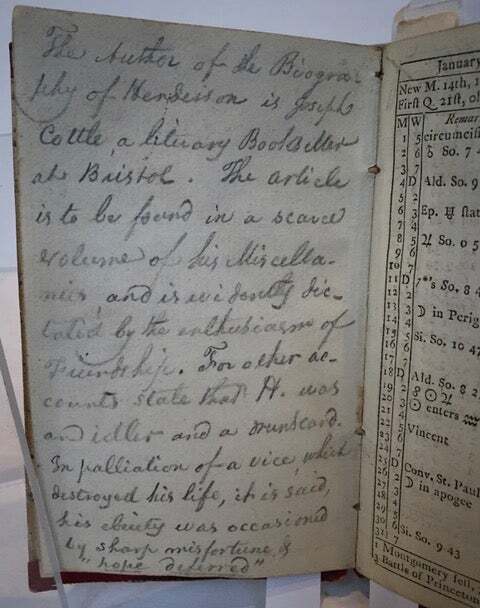 The Author of the Biogra-
phy of Henderson is Joseph
Cottle a literary Bookseller
at Bristol. The article
is to be found in a scarce
volume of his Miscella-
nies, and is evidently dic-
tated by the enthusiasm of
Friendship. For other ac-
counts state that H. was
an idler and a drunkard.
In palliation of a vice, which
destroyed his life, it is said,
his ebriety was occasioned
by sharp misfortune, &
"hope deferred"
January
New M. 14th, 1
First Q. 21st, o
M W Remar
1 5 circumcisi
2 6 ♄ So. 7 4
3 7
4 D Ald. So. 9
5 2
6 3 Ep. ♅ stat
7 4
8 5 ♃ So. 0 5
9 6
10 7
11 D 7*'s So. 8 4
12 2
13 3 ☽ in Perig
14 4
15 5 Si. So. 10 47
16 6
17 7
18 D Ald. So. 8 2
19 2 8 ☉ ♃
20 3 ☉ enters ♒
21 4
22 5 Vincent
23 6
24 7
25 D Conv. St. Paul
26 2 ☽ in apogee
27 3
28 4
29 5
30 6 Si. So. 9 43
31 7
1 Montgomery fell,
3 Battle of Princeton